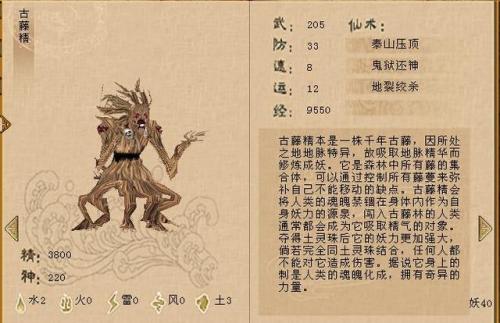 古藤精
武: 205 仙术:
防: 33 泰山压顶
速: 8 鬼狱还神
运: 12 地裂绞杀
经: 9550
古藤精本是一株千年古藤,因所处
之地地脉特异,故吸取地脉精华而
修炼成妖。它是森林中所有藤的集
合体,可以通过控制所有藤蔓来弥
补自己不能移动的缺点。古藤精会
将人类的魂魄禁锢在身体内作为自
身妖力的源泉,闯入古藤林的人类
通常都会成为它吸取精气的对象。
夺得土灵珠后它的妖力更加强大,
倘若完全同土灵珠结合,任何人都
不能对它造成伤害。据说它身上的
刺是人类的魂魄化成,拥有奇异的
力量。
精: 3800
神: 220
水2 火0 雷0 风0 土3
妖40